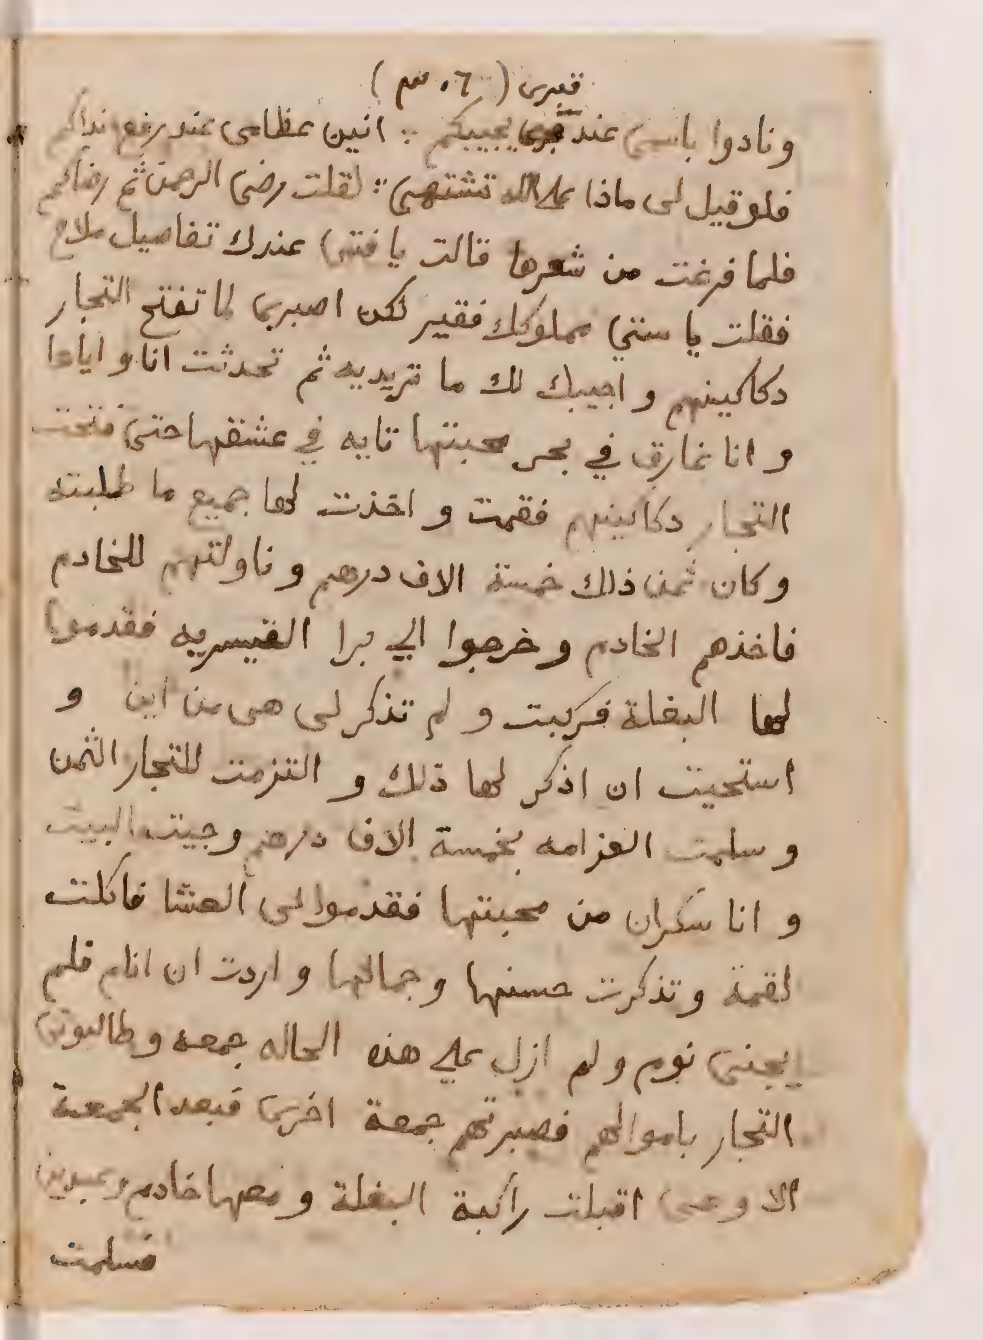 قبرى
ونادوا باسمى عند قبرى يجيبكم ∴ انين عظامى عند رفع نداكم
فلو قيل لى ماذا على الله تشتهى ∴ لقلت رضى الرحمن ثم رضاكم
فلما فرغت من شعرها قالت يا فتى عندك تفاصيل ملاح
فقلت يا ستى مملوكك فقير لكن اصبرى لما تفتح التجار
دكاكينهم و اجيبك لك ما تريديه ثم تحدثت انا و اياها
و انا غارق في بحر محبتها تايه في عشقها حتى فتحت
التجار دكاكينهم فقمت و اخذت لها جميع ما طلبته
وكان ثمن ذلك خمسة الاف درهم و ناولتهم للخادم
فاخذهم الخادم و خرجوا الي برا القيسريه فقدموا
لها البغلة فركبت و لم تذكر لى هى من اين و
استحيت ان اذكر لها ذلك و التزمت للتجار الثمن
و سلمت الغرامه بخمسة الاف درهم وجيت البيت
و انا سكران من محبتها فقدموا لى العشا فاكلت
لقمة وتذكرت حسنها وجمالها و اردت ان انام فلم
يجنى نوم و لم ازل علي هذه الحاله جمعه وطالبونى
التجار باموالهم فصبرتهم جمعة اخرى فبعد الجمعة
الا وهى اقبلت راكبة البغلة و معها خادم وعبدين
فسلمت